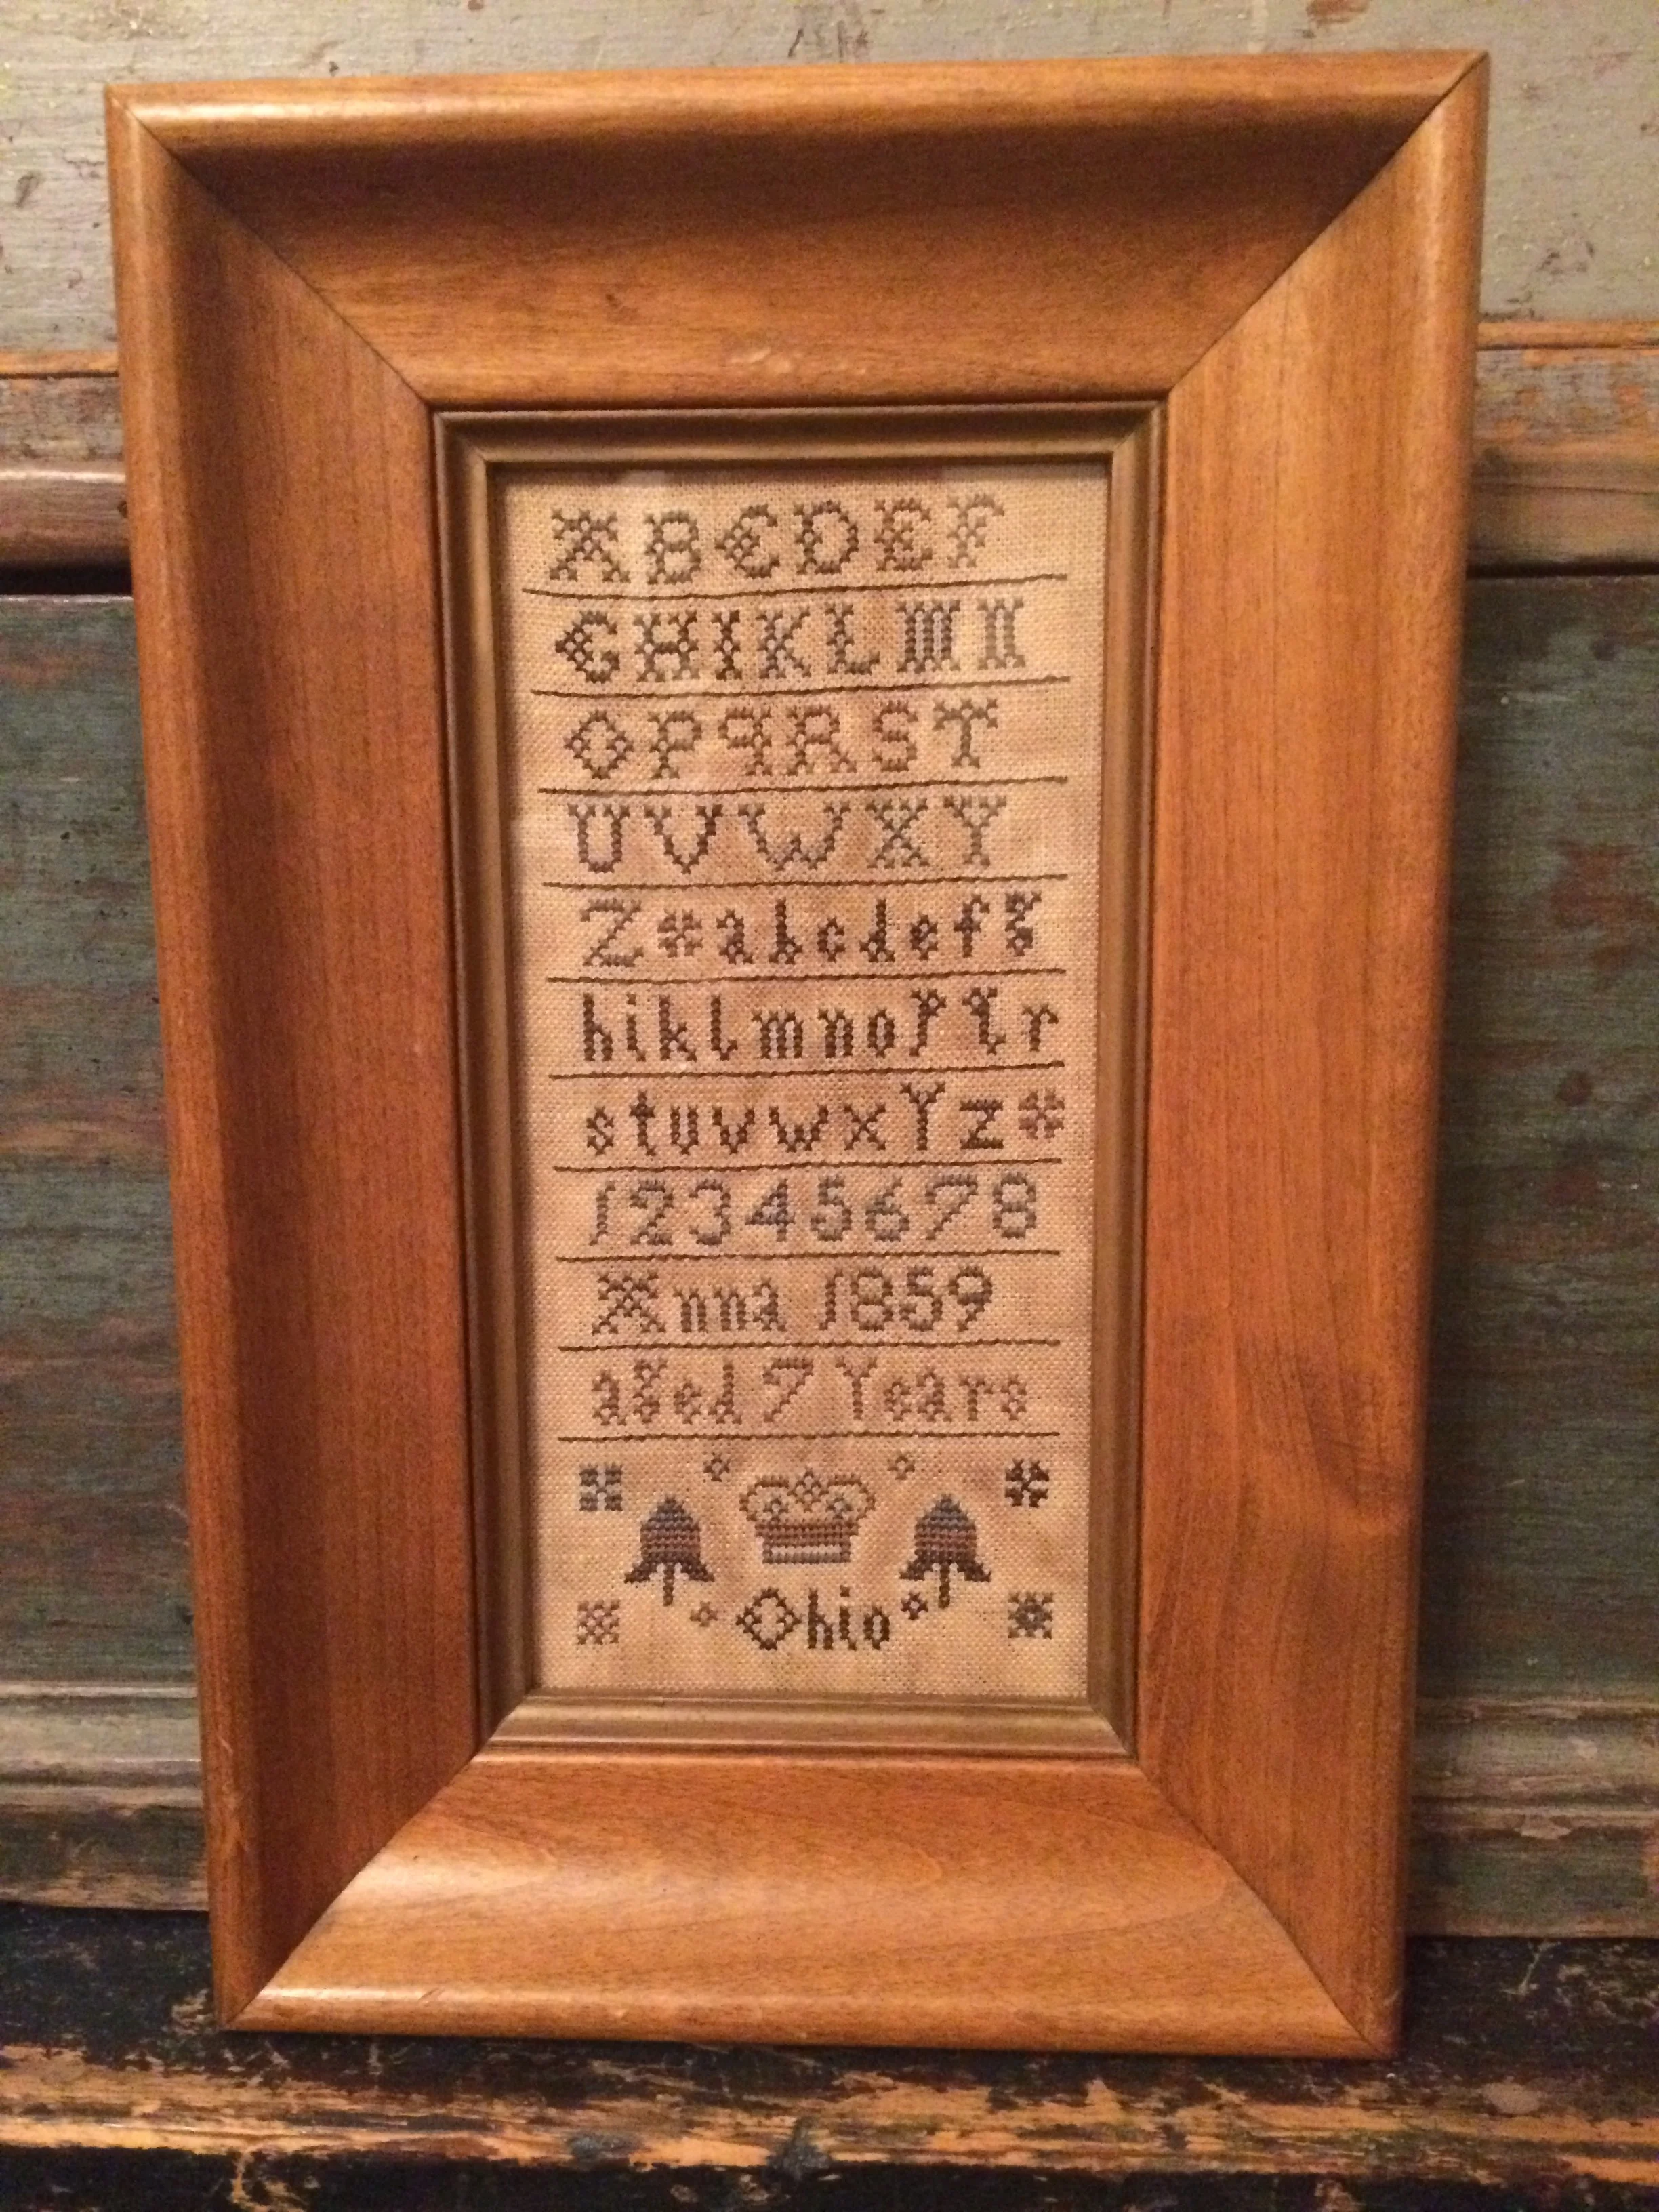 A B C D E F
G H I K L M N
O P q R S T
U V W X Y
Z a b c d e f g
h i k l m n o p q r
s t u v w x Y z
1 2 3 4 5 6 7 8
Anna 1859
aged 7 Years
Ohio